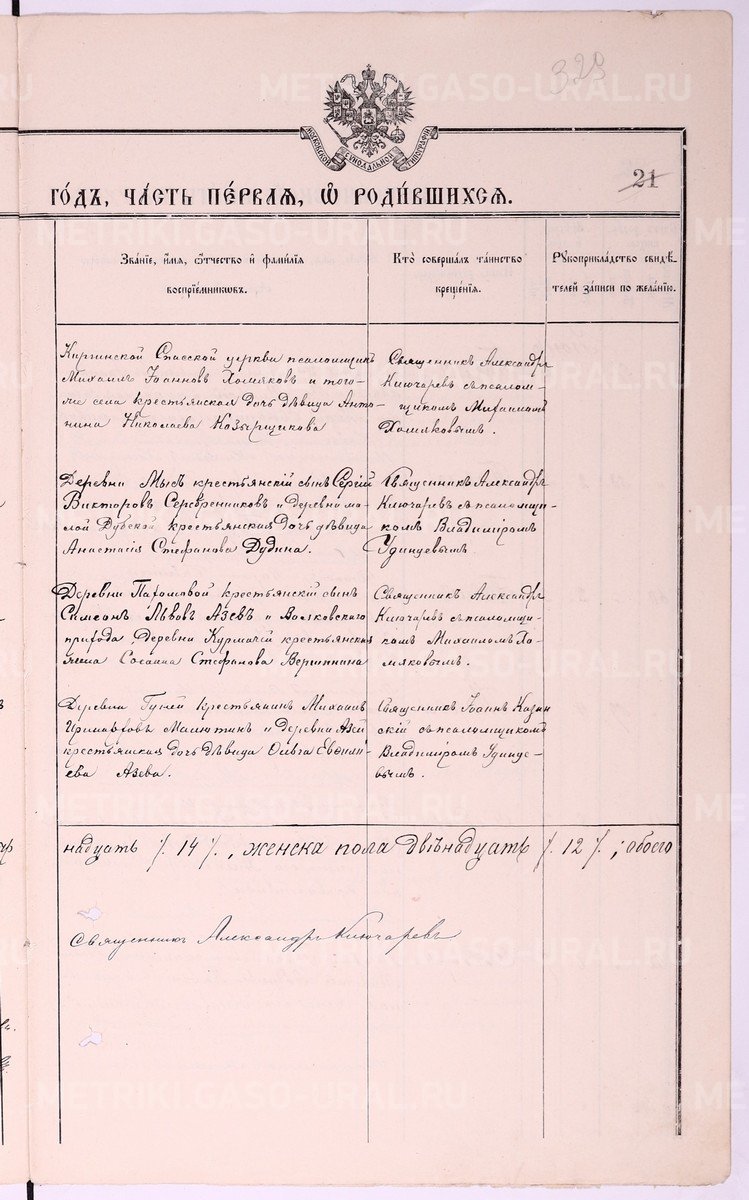 329
МОСКОВСКОЙ СѴНОДАЛЬНОЙ ТИПОГРАФІИ
21
ГО́ДЪ, ЧА́СТЬ ПЕ́РВАЯ, Ѽ РОДИ́ВШИХСЯ.
Зва́нїе, и҆́мя, ѻ҆́тчество и҆ фами́лїя
воспрїе́мникѡвъ.
Кто̀ соверша́лъ та́инство
креще́нїя.
Рꙋкоприкла́дство свидѣ́-
телей за́писи по жела́нїю.
Киргинской Спасской церкви псаломщикъ
Михаилъ Іоанновъ Хомяковъ и того-
же села крестьянская дочь дѣвица Анто-
нина Николаева Козырщикова
Священникъ Александръ
Ключаревъ съ псалом-
щикомъ Михаиломъ
Хомяковымъ.
Деревни Мысъ крестьянскій сынъ Сергій
Викторовъ Серебренниковъ и деревни ма-
лой Дубской крестьянская дочь дѣвица
Анастасія Стефанова Дудина.
Священникъ Александръ
Ключаревъ съ псаломщи-
комъ Владиміромъ
Удинцевымъ
Деревни Пахомовой крестьянскій сынъ
Симеонъ Львовъ Азевъ и Волковского
прихода Деревни Курмачей крестьянская
жена Сосанна Стефанова Вершинина
Священникъ Александръ
Ключаревъ съ псаломщи-
комъ Михаиломъ Хо-
мяковымъ.
Деревни Гуней крестьянинъ Михаилъ
Малютинъ и деревни Азей
крестьянская дочь дѣвица Ольга Евфимі-
ева Азева.
Священникъ Іоаннъ Казан
скій съ псаломщикомъ
Владиміромъ Удинце-
вымъ.
надцать /. 14 /. , женска пола двѣнадцать /. 12 /. ; обоего
Священникъ Александръ Ключаревъ
METRIKI.GASO-URAL.RU